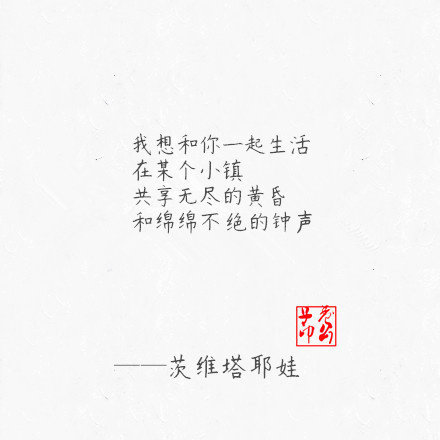 我想和你一起生活
在某个小镇
共享无尽的黄昏
和绵绵不绝的钟声
——茨维塔耶娃